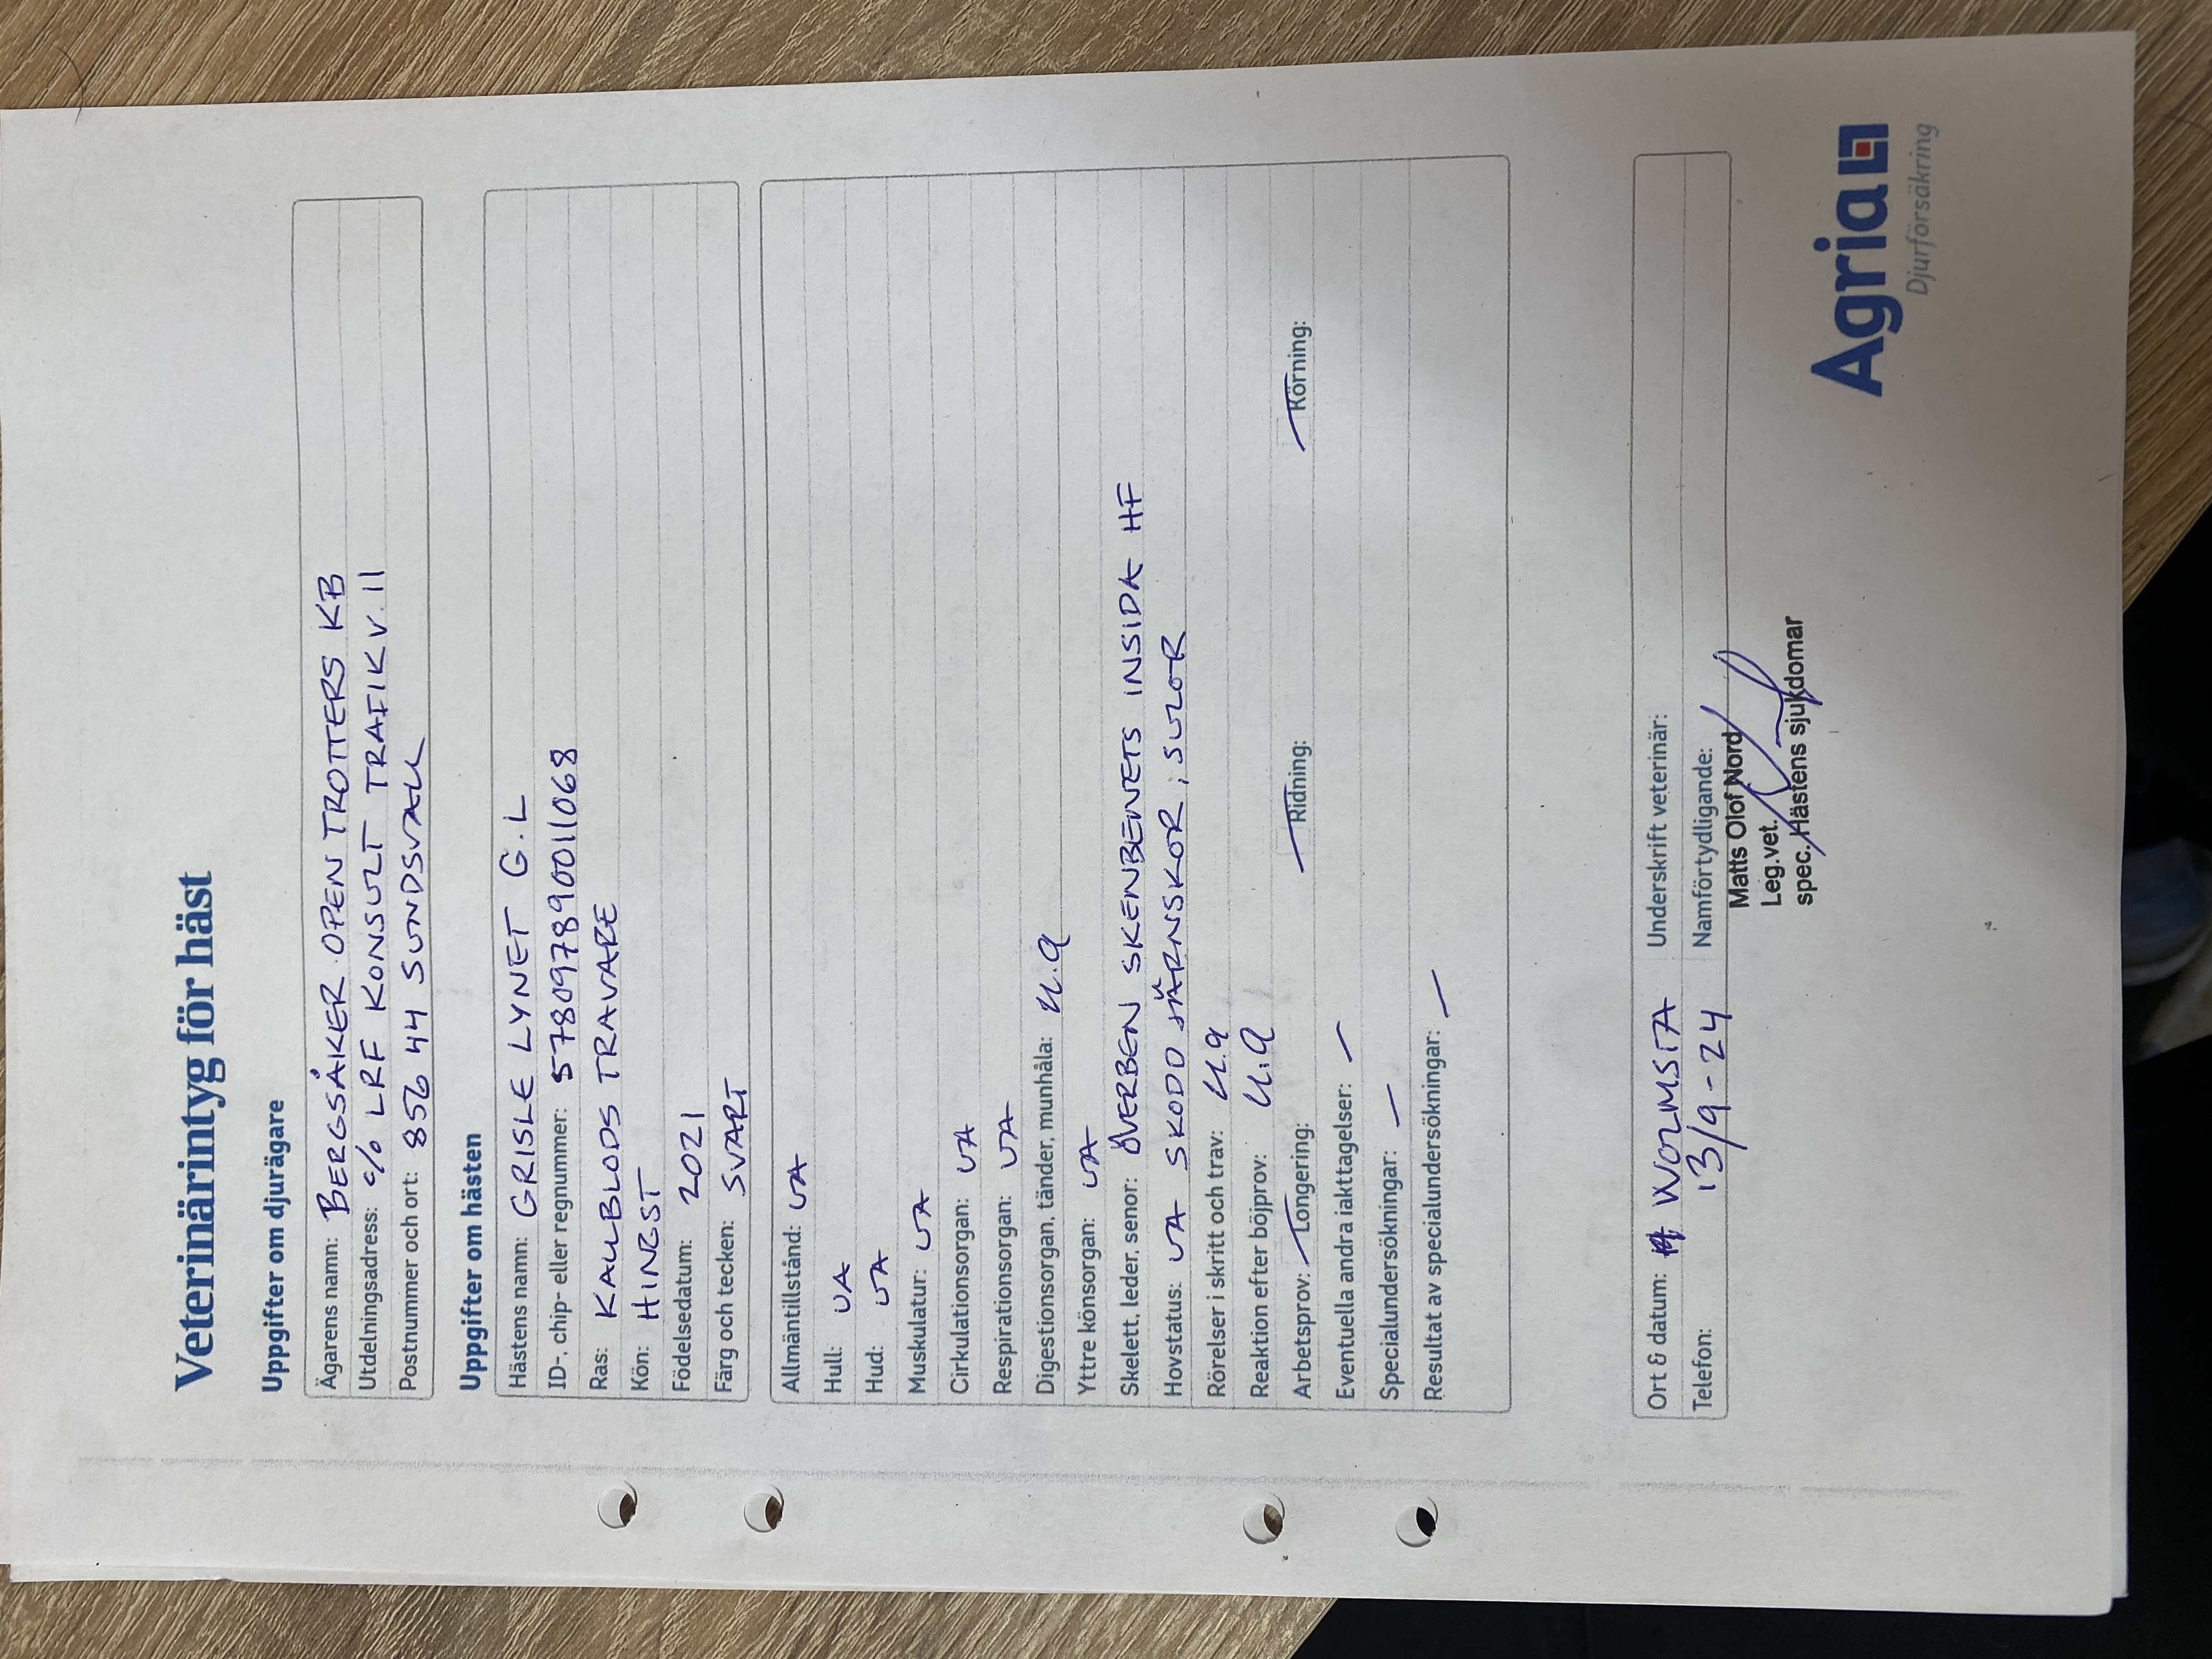 Veterinärintyg för häst
Uppgifter om djurägare
Ägarens namn: BERGSÅKER OPEN TROTTERS KB
Utdelningsadress: c/o LRF KONSULT TRAFIKV. 11
Postnummer och ort: 856 44 SUNDSVALL
Uppgifter om hästen
Hästens namn: GRISLE LYNET G.L
ID-, chip- eller regnummer: 578097890011068
Ras: KALLBLODS TRAVARE
Kön: HINGST
Födelsedatum: 2021
Färg och tecken: SVART
Allmäntillstånd: UA
Hull: UA
Hud: UA
Muskulatur: UA
Cirkulationsorgan: UA
Respirationsorgan: UA
Digestionsorgan, tänder, munhåla: u.a
Yttre könsorgan: UA
Skelett, leder, senor: ÖVERBEN SKENBENETS INSIDA HF
Hovstatus: UA SKODD JÄRNSKOR; SULOR
Rörelser i skritt och trav: u.a
Reaktion efter böjprov: u.a
Arbetsprov: Longering: Ridning: Körning:
Eventuella andra iakttagelser: –
Specialundersökningar: –
Resultat av specialundersökningar: –
Ort & datum: WOLMSTA Underskrift veterinär:
13/9-24
Telefon: Namförtydligande:
Matts Olof Nord
Leg.vet.
spec. Hästens sjukdomar
Agria
Djurförsäkring